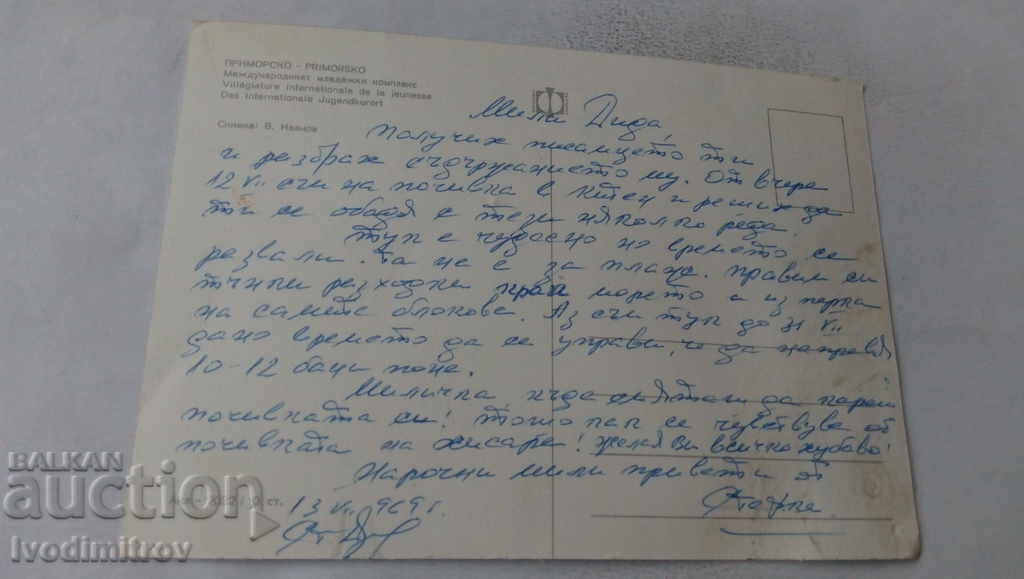 ПРИМОРСКО - PRIMORSKO
Международният младежки комплекс
Villagiature internationale de la jeunesse
Das Internationale Jugendkurort
Снимка: В. Иванов
Мили Дида,
Получих писмцето ти
и разбрах съдържанието му. От вчера
12 VII съм на почивка в Китен и реших да
ти се обадя с тези няколко реда.
Тук е чудесно но времето се
развали. Та не е за плаж. Правим си
разходки край морето и из парка
на самите блокове. Аз съм тук до 31 VII
дано времето да се управи, че да направя
10-12 бани поне.
Миличка, къде смяташ да караш
почивката си? Този път се чувствува от
почивката на Хисаря! Желая Ви всичко хубаво!
Нарочни мили привети от
13 VII 969 г.
BALKAN
auction
Ivodimitrov